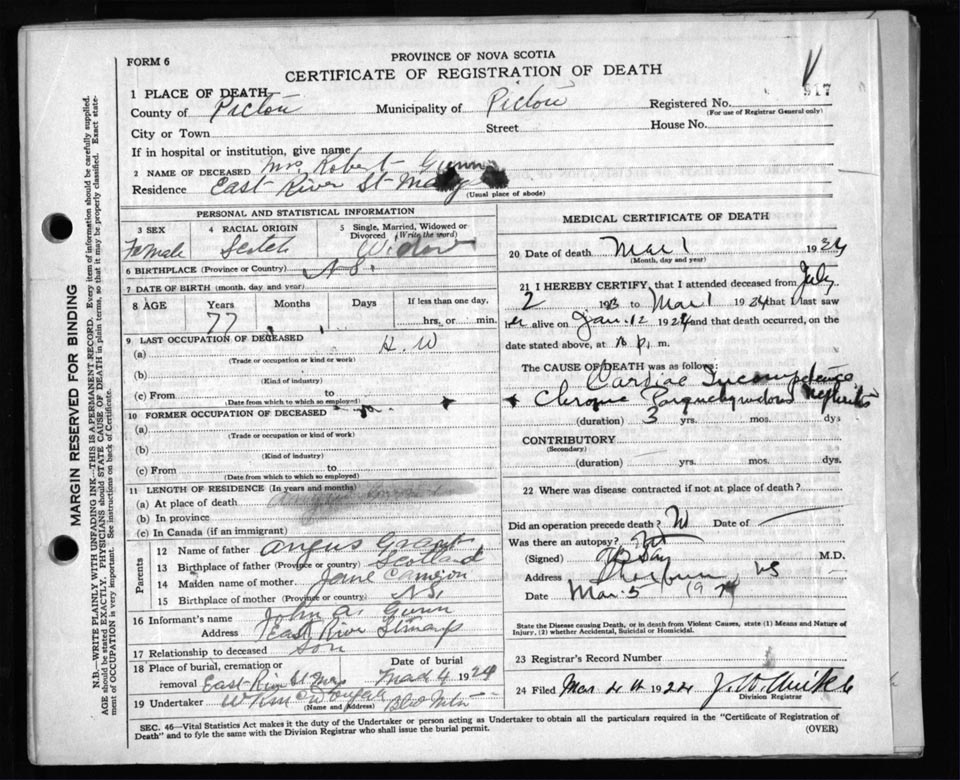 FORM 6
PROVINCE OF NOVA SCOTIA
CERTIFICATE OF REGISTRATION OF DEATH
917
1 PLACE OF DEATH
County of Pictou Municipality of Pictou Registered No.
(For use of Registrar General only)
City or Town Street House No.
If in hospital or institution, give name
2 NAME OF DECEASED Mrs Robert Gunn
Residence East River St Marys
(Usual place of abode)
PERSONAL AND STATISTICAL INFORMATION
3 SEX 4 RACIAL ORIGIN 5 Single, Married, Widowed or Divorced (Write the word)
Female Scotch Widow
6 BIRTHPLACE (Province or Country) N.S.
7 DATE OF BIRTH (month, day and year)
8 AGE Years Months Days If less than one day,
77 hrs. or min.
9 LAST OCCUPATION OF DECEASED
(a) H. W
(Trade or occupation or kind or work)
(b)
(Kind of industry)
(c) From to
(Date from which to which so employed)
10 FORMER OCCUPATION OF DECEASED
(a)
(Trade or occupation or kind of work)
(b)
(Kind of industry)
(c) From to
(Date from which to which so employed)
11 LENGTH OF RESIDENCE (In years and months)
(a) At place of death
(b) In province
(c) In Canada (if an immigrant)
Parents
12 Name of father Angus Grant
13 Birthplace of father (Province or country) Scotland
14 Maiden name of mother Jane Cameron
15 Birthplace of mother (Province or country) N.S.
16 Informant's name John A. Gunn
Address East River St Marys
17 Relationship to deceased son
18 Place of burial, cremation or removal East River St Mary Date of burial Mar 4 1924
19 Undertaker
(Name and Address)
MEDICAL CERTIFICATE OF DEATH
20 Date of death Mar 1 1924
(Month, day and year)
21 I HEREBY CERTIFY, that I attended deceased from July
2 19 to Mar 1 1924 that I last saw
her alive on Jan. 12 1924 and that death occurred, on
date stated above, at p. m.
The CAUSE OF DEATH was as follows:
Cardiac Incompetence
Chronic Nephritis
(duration) 3 yrs. mos. dys
CONTRIBUTORY
(Secondary)
(duration) yrs. mos. dys.
22 Where was disease contracted if not at place of death?
Did an operation precede death? Date of
Was there an autopsy?
(Signed) M.D.
Address Thorburn, NS
Date Mar. 5 1924
State the Disease causing Death, or in death from Violent Causes, state (1) Means and Nature of Injury, (2) whether Accidental, Suicidal or Homicidal.
23 Registrar's Record Number
24 Filed Mar 4th 1924
Division Registrar
SEC. 46—Vital Statistics Act makes it the duty of the Undertaker or person acting as Undertaker to obtain all the particulars required in the "Certificate of Registration of
Death" and to fyle the same with the Division Registrar who shall issue the burial permit. (OVER)
MARGIN RESERVED FOR BINDING
N.B.—WRITE PLAINLY WITH UNFADING INK—THIS IS A PERMANENT RECORD. Every item of information should be carefully supplied.
AGE should be stated EXACTLY. PHYSICIANS should STATE CAUSE OF DEATH in plain terms, so that it may be properly classified. Exact statement of OCCUPATION is very important. See instructions on back of Certificate.